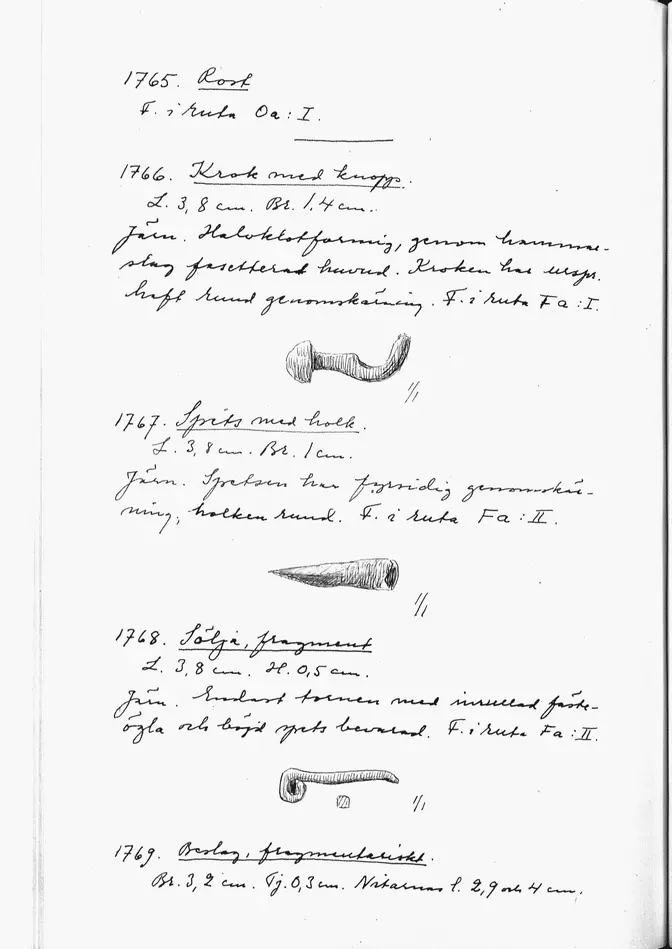 1765. Rost
F. i ruta Oa : I.
1766. Krok med knopp.
L. 3,8 cm. Br. 1,4 cm.
Järn. Halvklotformig, genom hammar-
slag fasetterad huvud. Kroken har urspr.
haft rund genomskärning. F. i ruta Fa : I.
1/1
1767. Spets med holk.
L. 3,8 cm. Br. 1 cm.
Järn. Spetsen har fyrsidig genomskär-
ning, holken rund. F. i ruta Fa : II.
1/1
1768. Sölja, fragment
L. 3,8 cm. H. 0,5 cm.
Järn. Endast tornen med inrullad fäste-
ögla och böjd spets bevarad. F. i ruta Fa : II.
1/1
1769. Beslag, fragmentariskt.
Br. 3,2 cm. Tj. 0,3 cm. Nitarnas l. 2,9 och 4 cm.